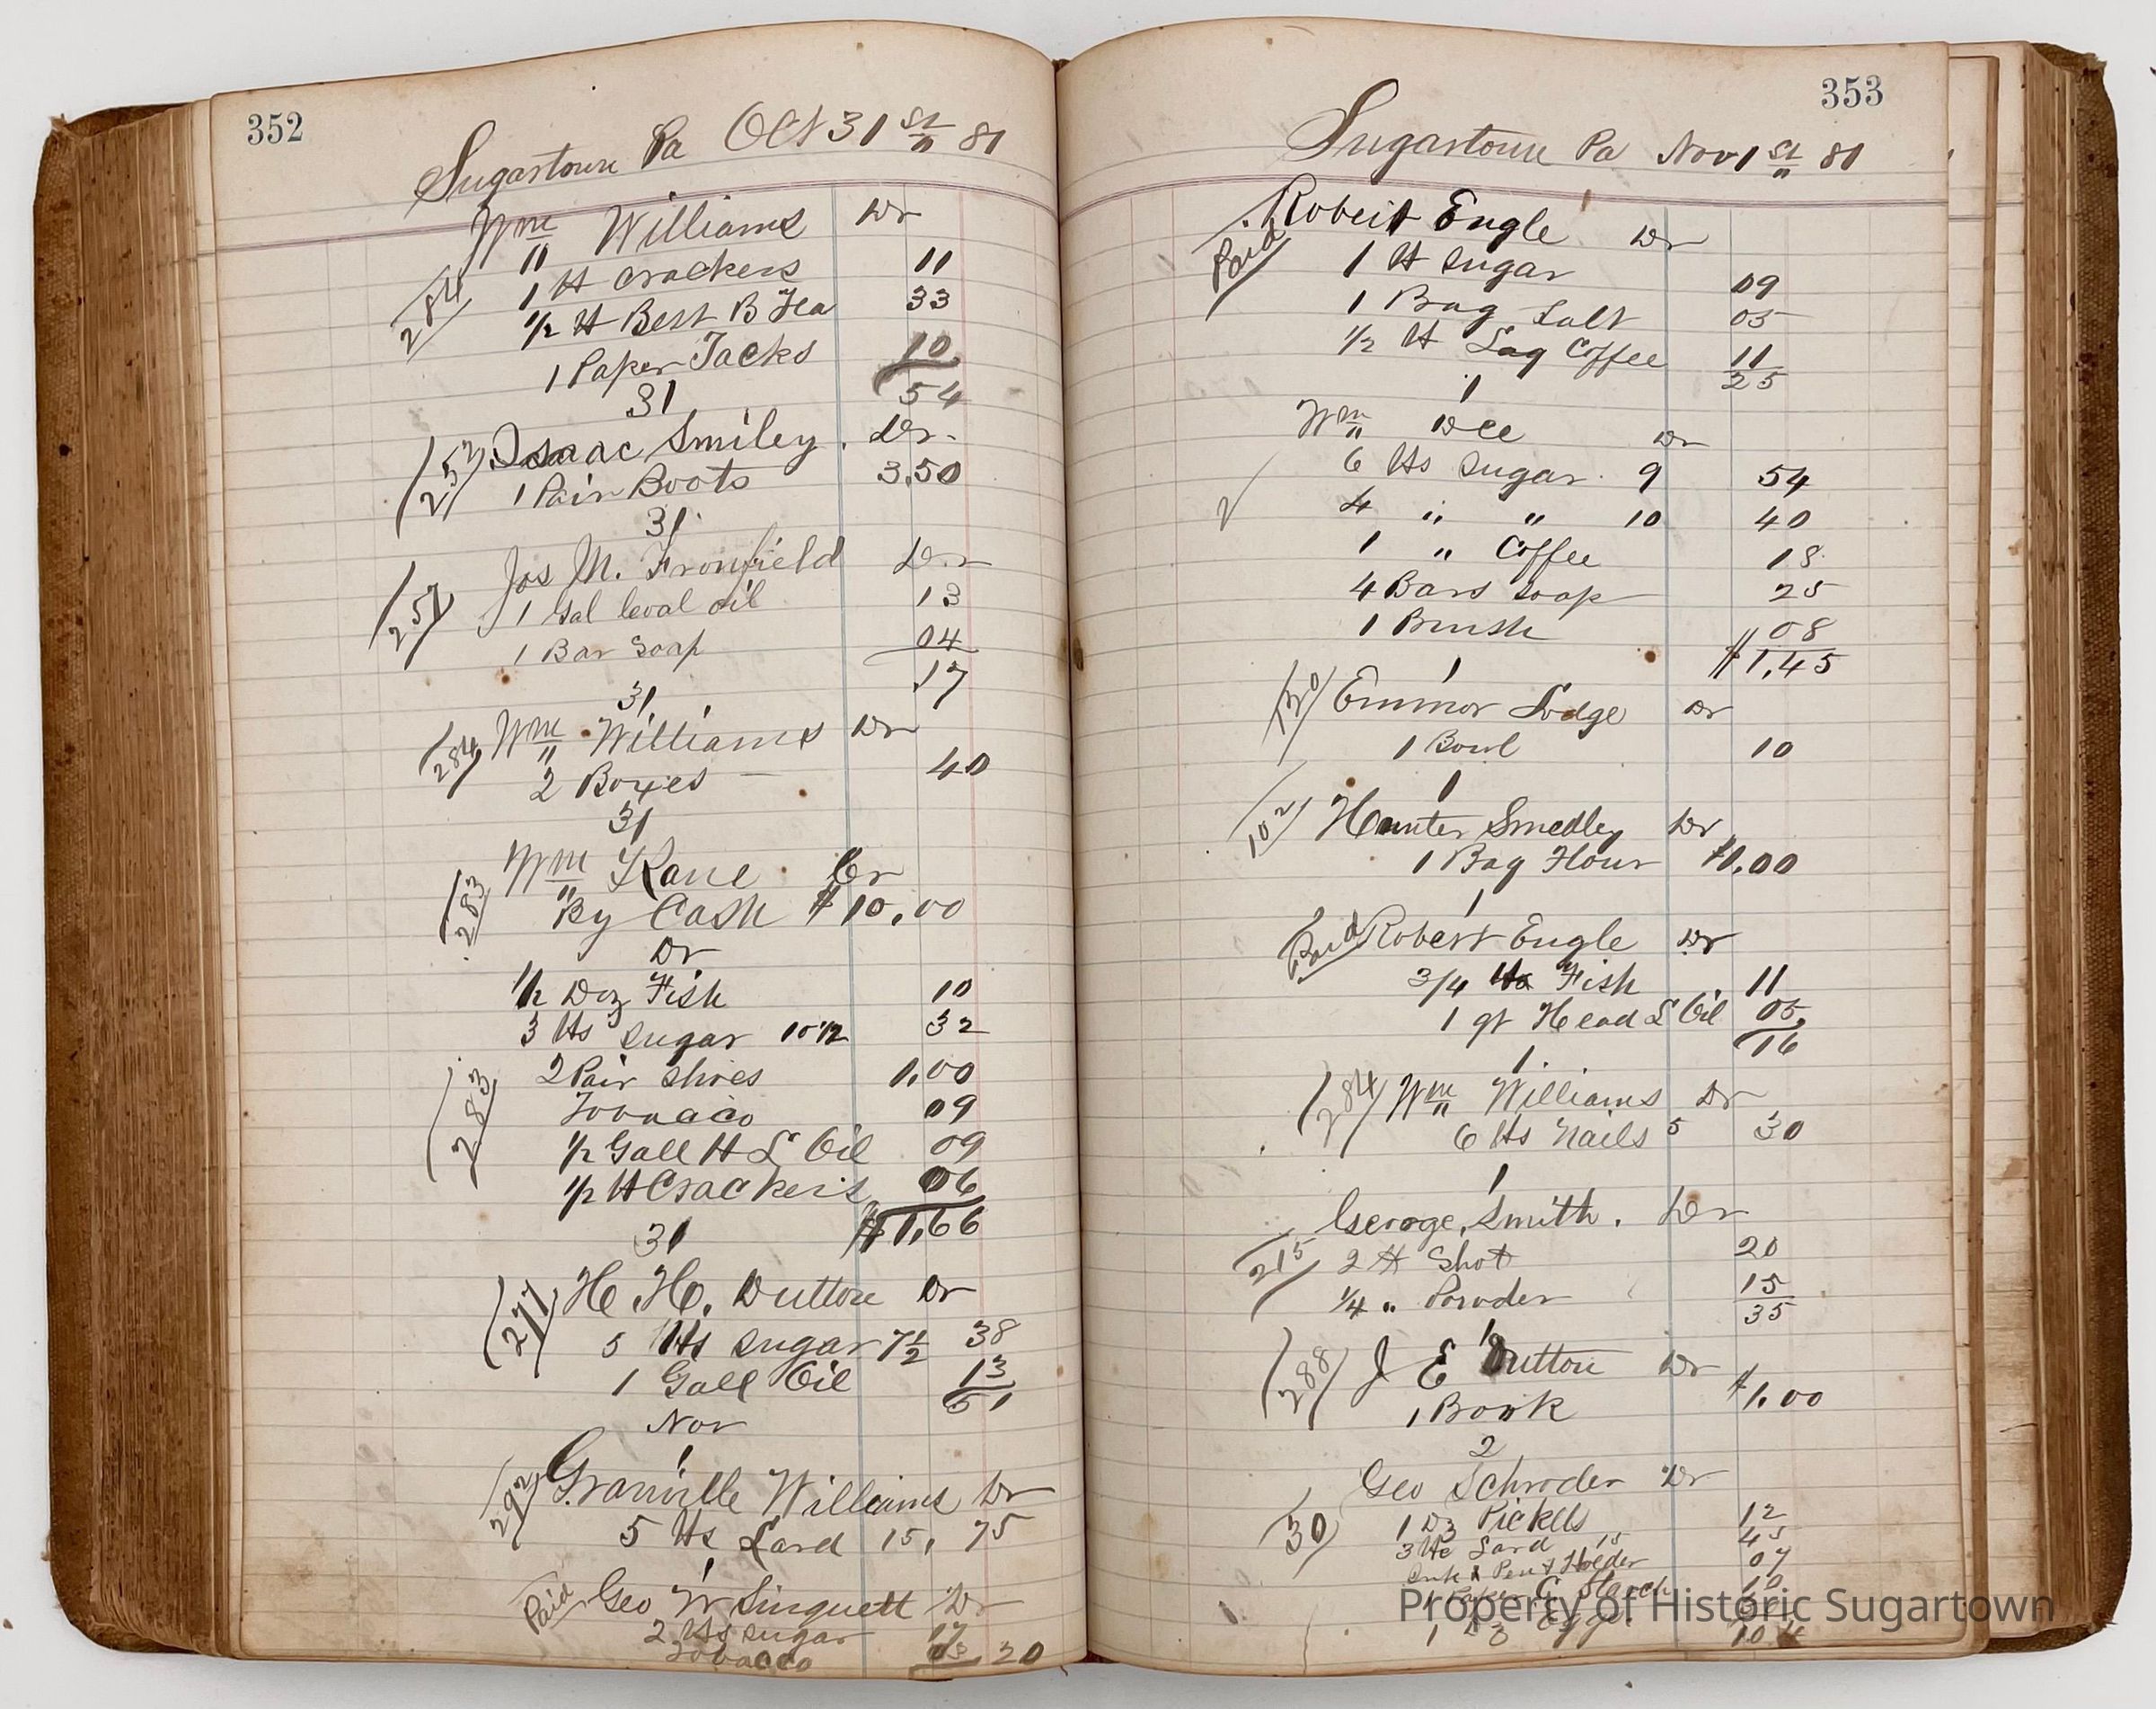 352
Sugartown Pa Oct 31 St 81
Wm Williams Dr
284
1 lt Crackers 11
1/2 lt Best B Tea 33
1 Paper Tacks 10
54
31
252 Isaac Smiley. Dr.
1 Pair Boots 3,50
31
Jos M. Fronfield Dr
257
1 Gal leval oil 13
1 Bar Soap 04
.17
31
284 Wm Williams Dr
2 Boxes 40
31
Wm Kane Cr
283
By Cash $10.00
Dr
1/2 Doz Fish 10
3 lts Sugar 10 1/2 32
283
2 Pair Shoes 1.00
Tobacco 09
1/2 Gall H L Oil 09
1/2 lt Crackers 06
$1,66
31
277 H. H. Dutton Dr
5 lts Sugar 7 1/2 38
1 Gall Oil 13
51
Nov
1
292 Granville Williams Dr
5 lts Lard 15, 75
1
Paid Geo W Singuett Dr
2 lts Sugar 17
Tobacco 03 20
353
Sugartown Pa Nov 1 St 81
Robert Engle Dr
Paid
1 lt Sugar 09
1 Bag Salt 05
1/2 lt Lag Coffee 11
25
1
Wm Dee Dr
6 lts Sugar 9 54
4 " " 10 40
1 " Coffee 18
4 Bars Soap 25
1 Brush 08
$1,45
1
120 Emmor Lodge Dr
1 Bowl 10
1
102 Hunter Smedley Dr
1 Bag Flour $1.00
1
Paid Robert Engle Dr
3/4 lts Fish 11
1 qt Head L Oil 05
16
1
284 Wm Williams Dr
6 lts Nails 5 30
1
George Smith. Dr
215
2 lt Shot 20
1/4 " Powder 15
35
1
288 J E Dutton Dr
1 Book $1.00
2
Geo Schroder Dr
30
1 Dz Pickells 12
3 lts Lard 15 45
Ink & Pen & Holder 07
1 Paper C Starch 10
1 Dz Eggs
Property of Historic Sugartown